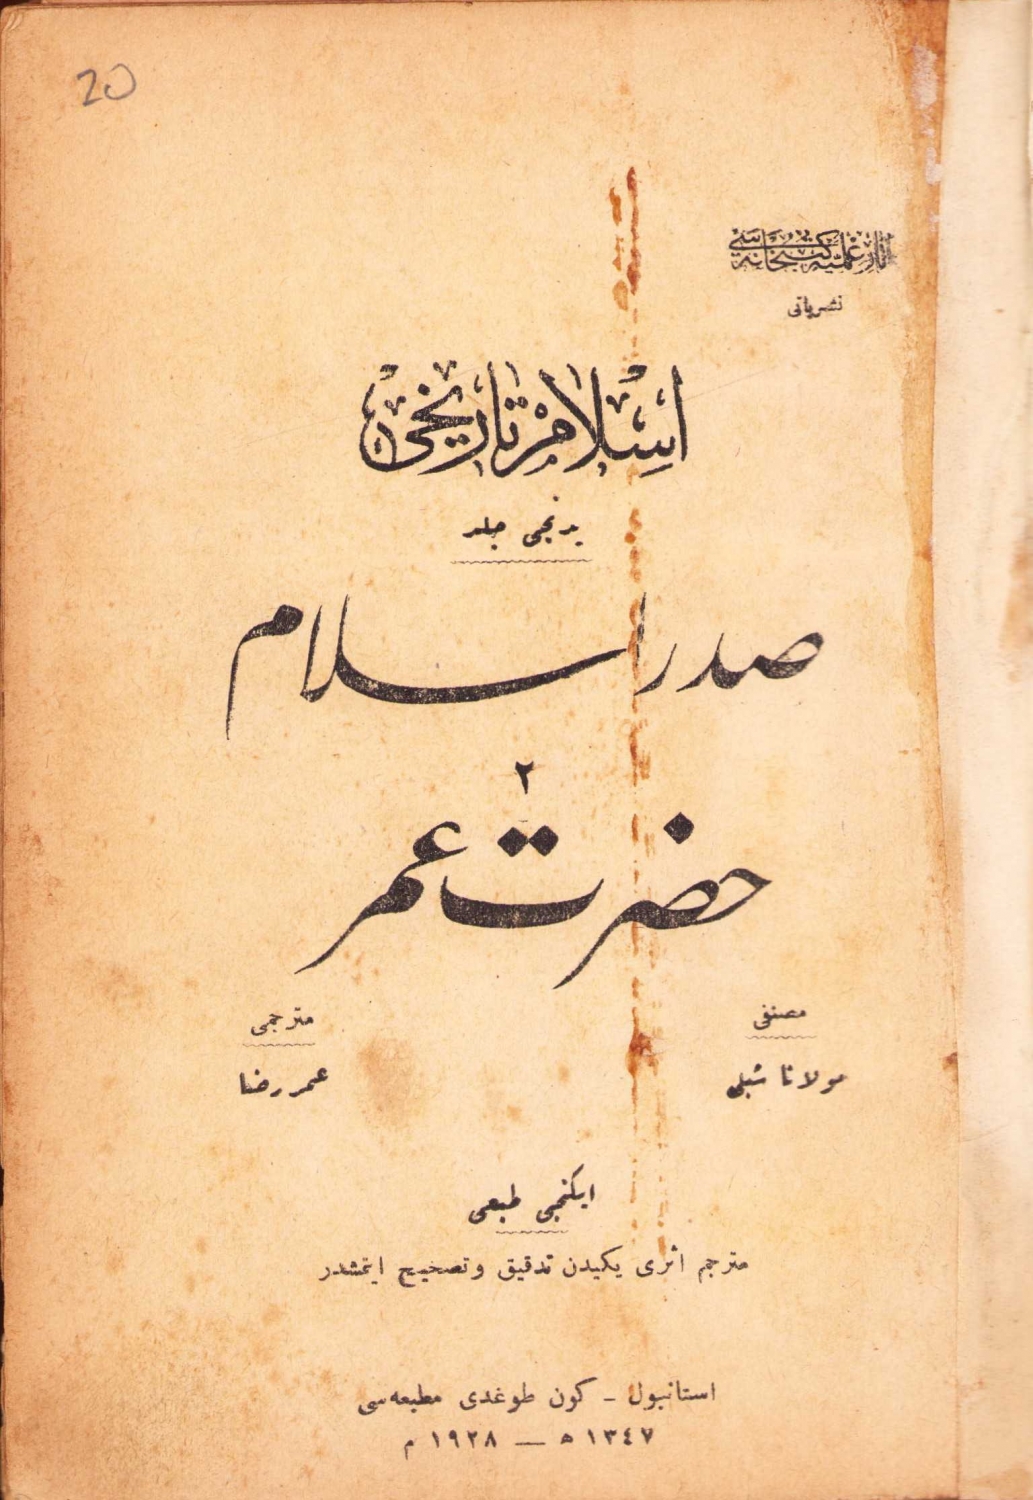 20
آثار علمیه کتبخانه‌سی
نشریاتی
اسلام تاریخی
یدنجی جلد
صدر اسلام
٢
حضرت عمر
مصنفی
مولانا شبلی
مترجمی
عمر رضا
ایکنجی طبعی
مترجم اثری یکیدن تدقیق وتصحیح ایتمشدر
استانبول ـ کون طوغدی مطبعه‌سی
١٣٤٧ ه — ١٩٢٨ م